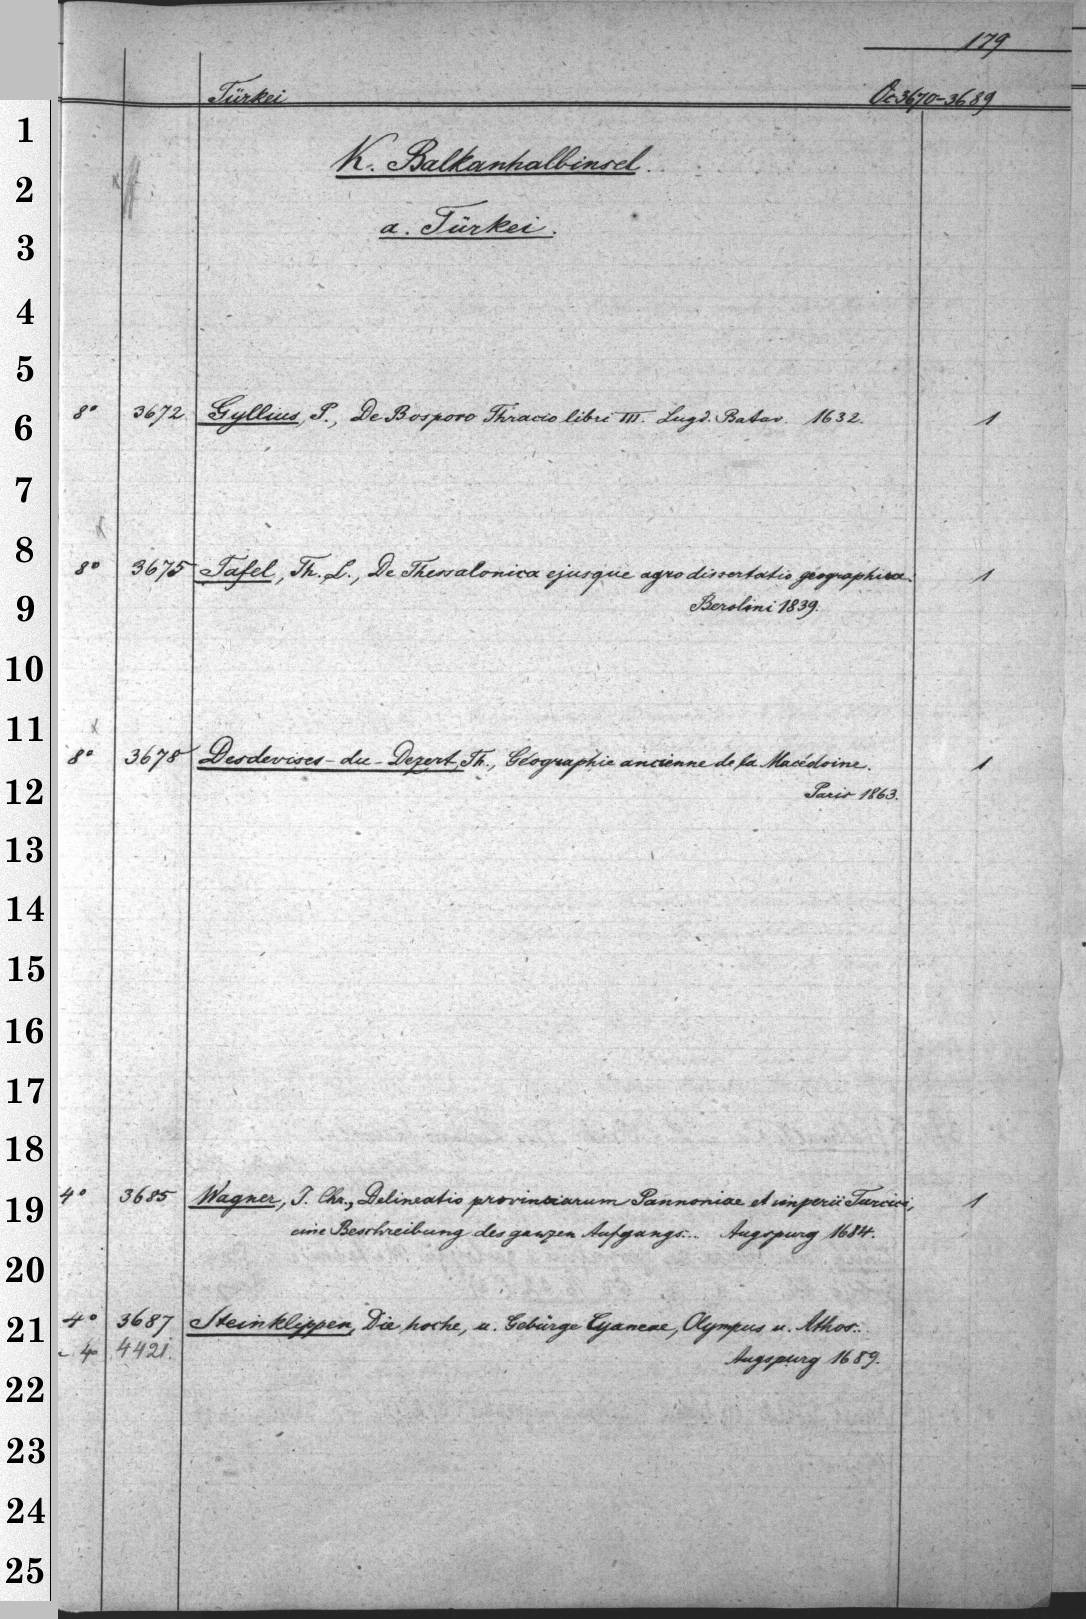 179
Türkei Oc 3670-3689
K. Balkanhalbinsel.
a. Türkei.
8° 3672 Gyllius, P., De Bosporo Thracio libri III. Lugd. Batav. 1632. 1
8° 3675 Tafel, Th. L., De Thessalonica ejusque agro dissertatio geographica. 1
Berolini 1839.
8° 3678 Desdevises-du-Dezert, Th., Géographie ancienne de la Macédoine. 1
Paris 1863.
4° 3685 Wagner, J. Chr., Delineatio provinciarum Pannoniae et imperii Turcici, 1
eine Beschreibung des ganzen Aufgangs... Augspurg 1684.
4° 3687 Steinklippen, Die hoche, u. Gebürge Cyaneae, Olympus u. Athos..
4 4421. Augspurg 1689.
1
2
3
4
5
6
7
8
9
10
11
12
13
14
15
16
17
18
19
20
21
22
23
24
25